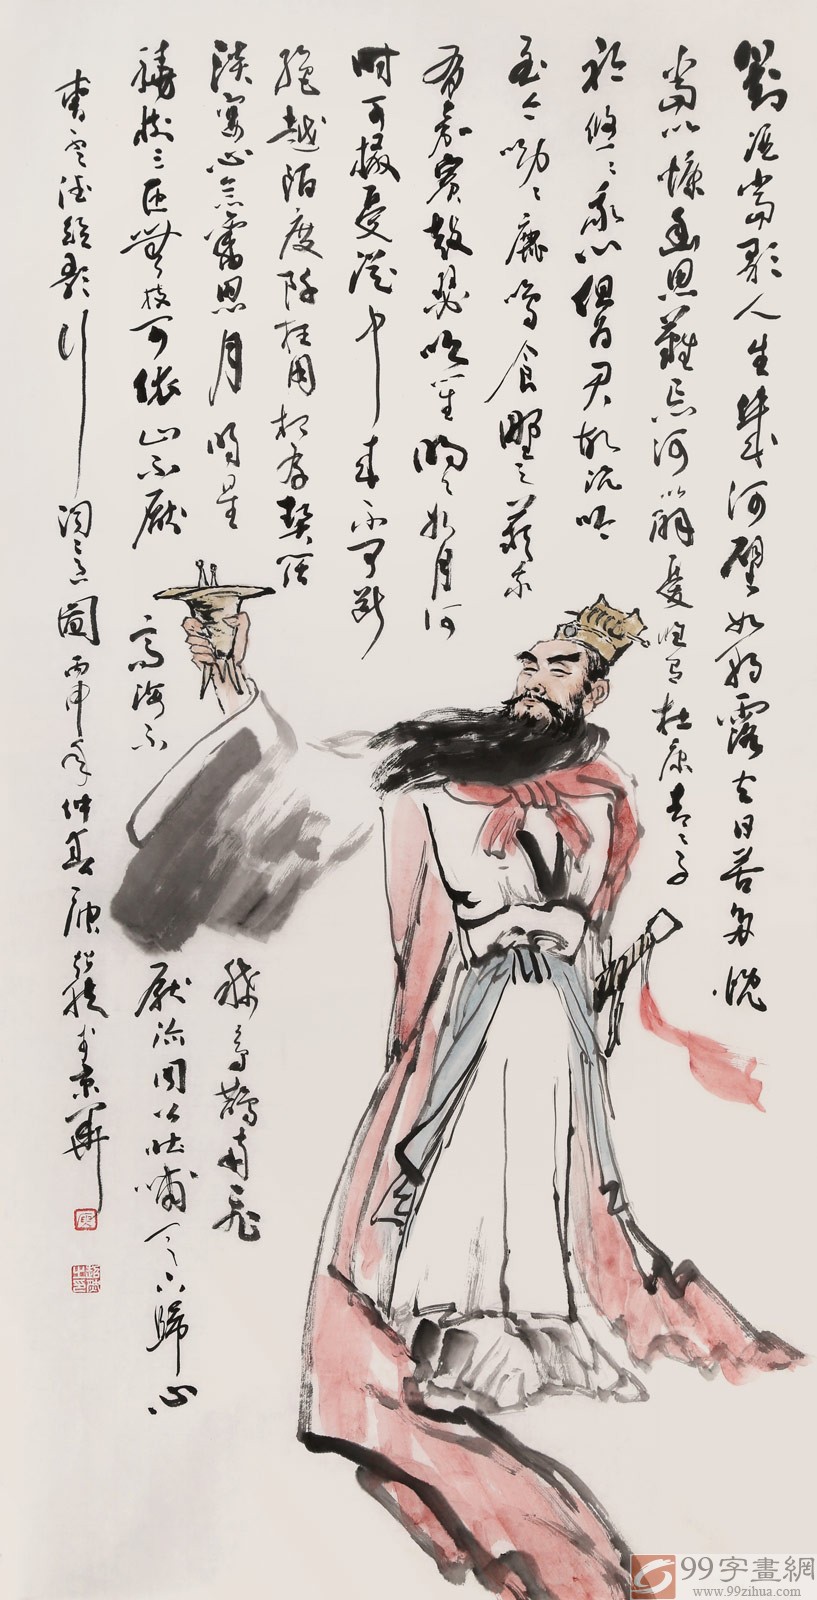 對酒當歌人生幾何譬如朝露去日苦多慨
當以慷幽思難忘何以解憂唯有杜康青青子
衿悠悠我心但為君故沉吟
至今呦呦鹿鳴食野之苹我
有嘉賓鼓瑟吹笙明明如月何
時可掇憂從中來不可斷
絕越陌度阡枉用相存契闊
談宴心念舊恩月明星
稀烏鵲南飛
繞樹三匝無枝可依山不厭
高海不
厭深周公吐哺天下歸心
曹孟德短歌行詞意圖丙申年仲春於京華
99字畫網
www.99zihua.com